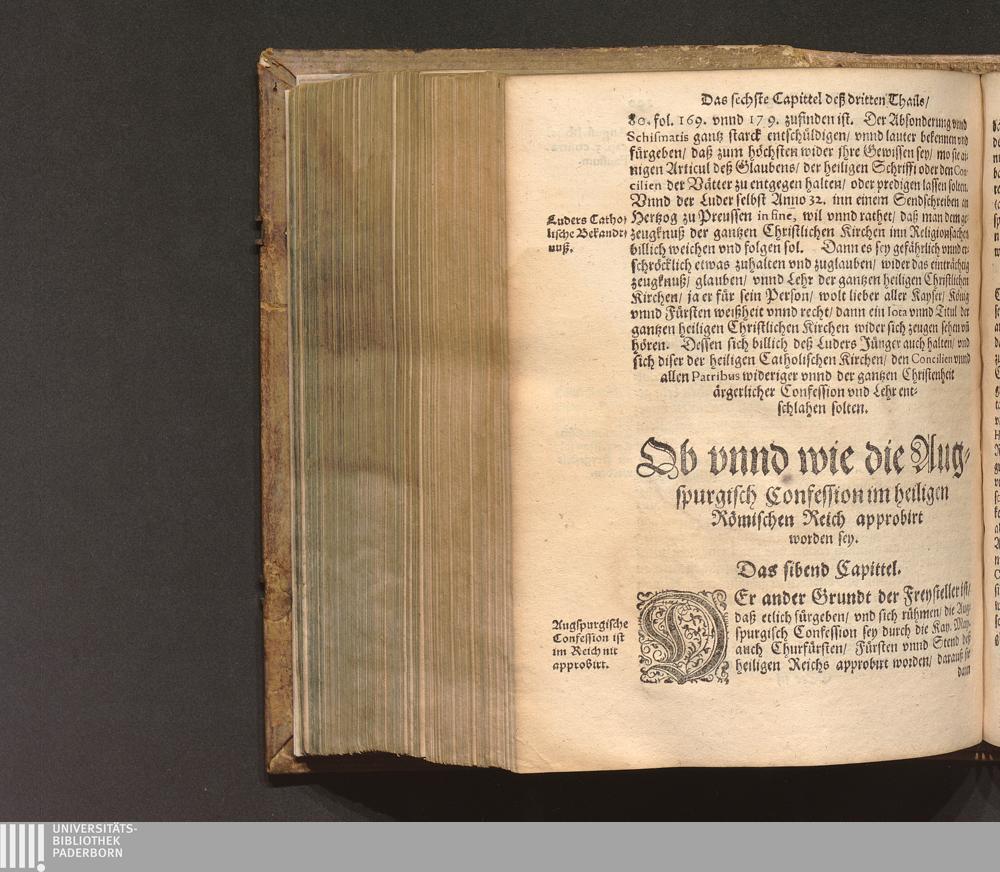 Das sechste Capittel deß dritten Thails/
80. fol. 169. vnnd 179. zufinden ist. Der Absonderung vnnd
Schismatis gantz starck entschüldigen/ vnnd lauter bekennen vnd
fürgeben/ daß zum höchsten wider jhre Gewissen sey/ wo sie ai-
nigen Articul deß Glaubens/ der heiligen Schrifft oder den Con-
cilien der Vätter zu entgegen halten/ oder predigen lassen solten.
Vnnd der Luder selbst Anno 32. inn einem Sendschreiben an
Luders Catho-
lische Bekandt-
nuß.
Hertzog zu Preussen in fine, wil vnnd rathet/ daß man dem ge-
zeugknuß der gantzen Christlichen Kirchen inn Religionsachen
billich weichen vnd folgen sol. Dann es sey gefährlich vnnd er-
schröcklich etwas zuhalten vnd zuglauben/ wider das einträchtig
zeugknuß/ glauben/ vnnd Lehr der gantzen heiligen Christlichen
Kirchen/ ja er für sein Person/ wolt lieber aller Kayser/ König
vnnd Fürsten weißheit vnnd recht/ dann ein Iota vnnd Titul der
gantzen heiligen Christlichen Kirchen wider sich zeugen sehen vñ
hören. Dessen sich billich deß Luders Jünger auch halten/ vnd
sich diser der heiligen Catholischen Kirchen/ den Concilien vnnd
allen Patribus wideriger vnnd der gantzen Christenheit
ärgerlicher Confession vnd Lehr ent-
schlahen solten.
Ob vnnd wie die Aug-
spurgisch Confession im heiligen
Römischen Reich approbirt
worden sey.
Das sibend Capittel.
Augspurgische
Confession ist
im Reich nit
approbirt.
DEr ander Grundt der Freysteller ist/
daß etlich fürgeben/ vnd sich rühmen/ die Aug-
spurgisch Confession sey durch die Kay. May.
auch Churfürsten/ Fürsten vnnd Stend deß
heiligen Reichs approbirt worden/ darauß sie
dann
UNIVERSITÄTS-
BIBLIOTHEK
PADERBORN